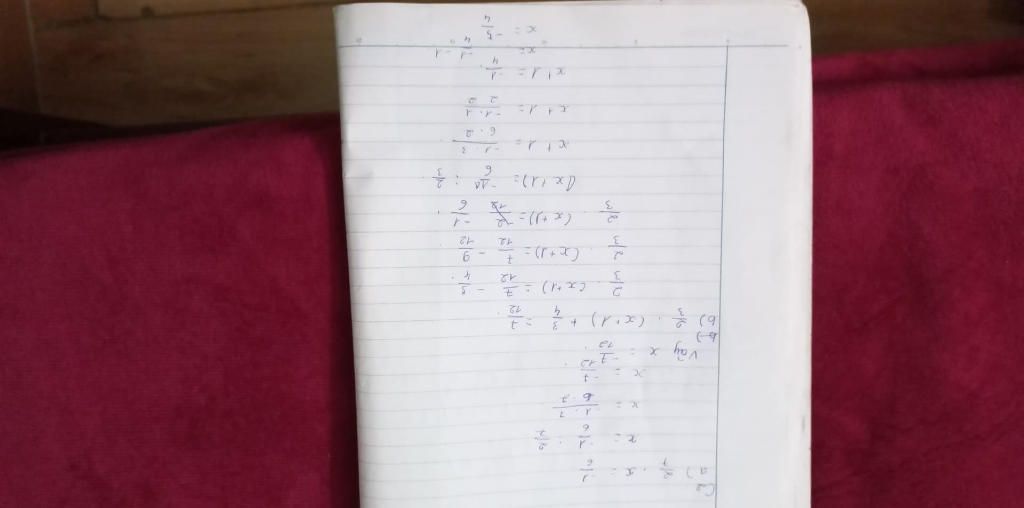 C2
a) 2/7 . x = -1/6
x = -1/6 : 2/7
x = -1.7/6.2
x = -7/12 .
Vậy x = -7/12 .
b) 2/3 . (x+1) + 3/4 = 7/12 .
2/3 . (x+1) = 7/12 - 3/4 .
2/3 . (x+1) = 7/12 - 9/12 .
2/3 . (x+1) = -1/6 .
(x+1) = -1/6 : 2/3 .
x+1 = -1.3/6.2 .
x+1 = -1.1/2.2
x+1 = -1/4 .
x = -1/4 - 1
x = -5/4